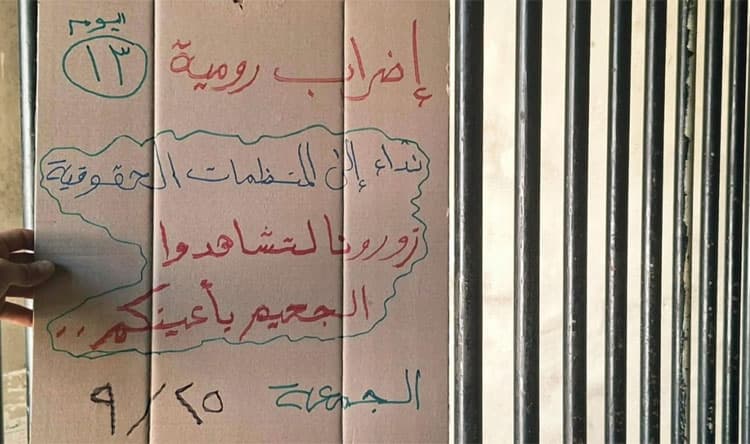 إضراب رومية اليوم ١٣
نداء إلى المنظمات الحقوقية
زورونا لتشاهدوا
الجحيم بأعينكم..
الجمعة ٩/٢٥